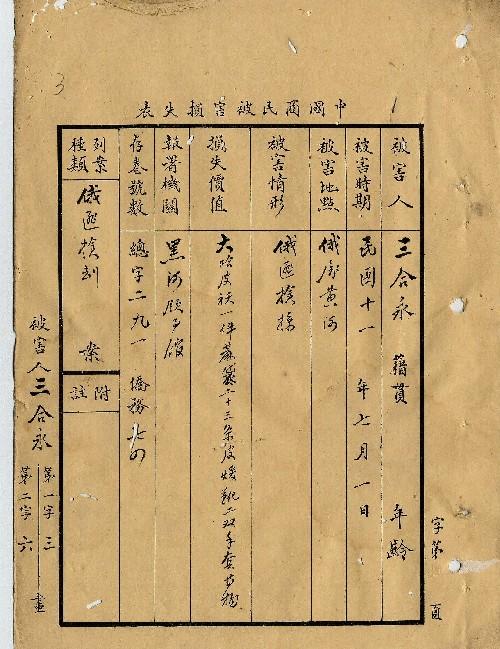 中國商民被害損失表
1
3
字第 頁
被害人 三合永 籍貫 年齡
被害時期 民國十一年七月一日
被害地點 俄屬黃河
被害情形 俄匪搶掠
損失價值 大哈皮袄一件 十三条皮 二双手套
報署機關 黑河領事館
存卷號數 總字二九一 僑務
列案種類 俄匪搶刦 案
附註
被害人三合永
第一字 三
第二字 六
畫